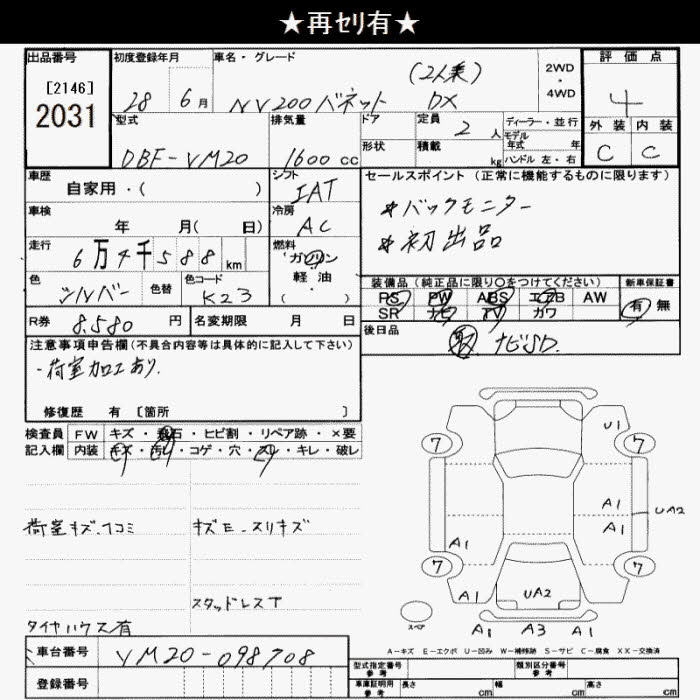 ★再ｾﾘ有★
出品番号
[2146]
2031
初度登録年月
28 6月
車名・グレード
NV200バネット (2人乗) DX
2WD
・
4WD
評価点
4
外装 内装
C C
型式
DBF-VM20
排気量
1600cc
ドア
形状
定員 2人
積載 kg
ディーラー・並行
モデル
年式 年
ハンドル 左・右
車歴
自家用・( )
車検
年 月( 日)
走行
6万4千588km
色
シルバー
色替
色コード
K23
シフト
IAT
冷房
AC
燃料
ガソリン
軽油・
( )
セールスポイント(正常に機能するものに限ります)
＊バックモニター
＊初出品
装備品(純正品に限り〇をつけてください)
PS PW ABS エアB AW
SR ナビ TV カワ
新車保証書
有 無
R券 8,580円
名変期限 月 日
後日品
取 ナビSD.
注意事項申告欄(不具合内容等は具体的に記入して下さい)
・荷室加工あり.
修復歴 有 [箇所 ]
検査員
記入欄
FW キズ・飛石・ヒビ割・リペア跡・×要
内装 キズ・汚レ・コゲ・穴・スレ・キレ・破レ
荷室キズ、凹コミ
キズE・スリキズ
スタッドレスT
タイヤハウス有
7 7
U1
A1
A1
UA2
A1
7 7
A1 UA2 A1
スペア
A1 A3 A1
A-キズ E-エクボ U-凹み W-補修跡 S-サビ C-腐食 XX-交換済
車台番号 VM20-098708
登録番号
型式指定番号
参考
類別区分番号
参考
車庫証明用
参考
長さ cm 幅 cm 高さ cm